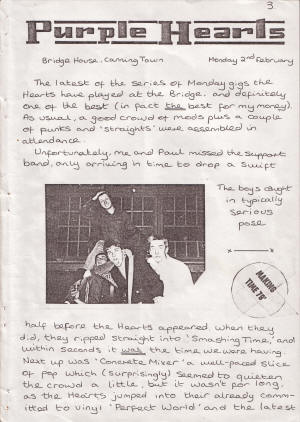 3.
Purple Hearts
Bridge House, Canning Town Monday 2nd February
The latest of the series of Monday gigs the
Hearts have played at the Bridge, and definitely
one of the best (in fact the best for my money).
As usual, a good crowd of mods plus a couple
of punks and 'straights' were assembled in
attendance.
Unfortunately, me and Paul missed the support
band, only arriving in time to drop a swift
The boys caught
in typically
serious
pose
MAKING
TIME '78
half before the Hearts appeared. when they
did, they ripped straight into 'Smashing Time,' and
within seconds it was the time we were having.
Next up was 'Concrete Mixer' a well-paced slice
of pop which (surprisingly) seemed to quieten
the crowd a little, but it wasn't for long,
as the Hearts jumped into their already comm-
itted to vinyl 'Perfect World' and the latest